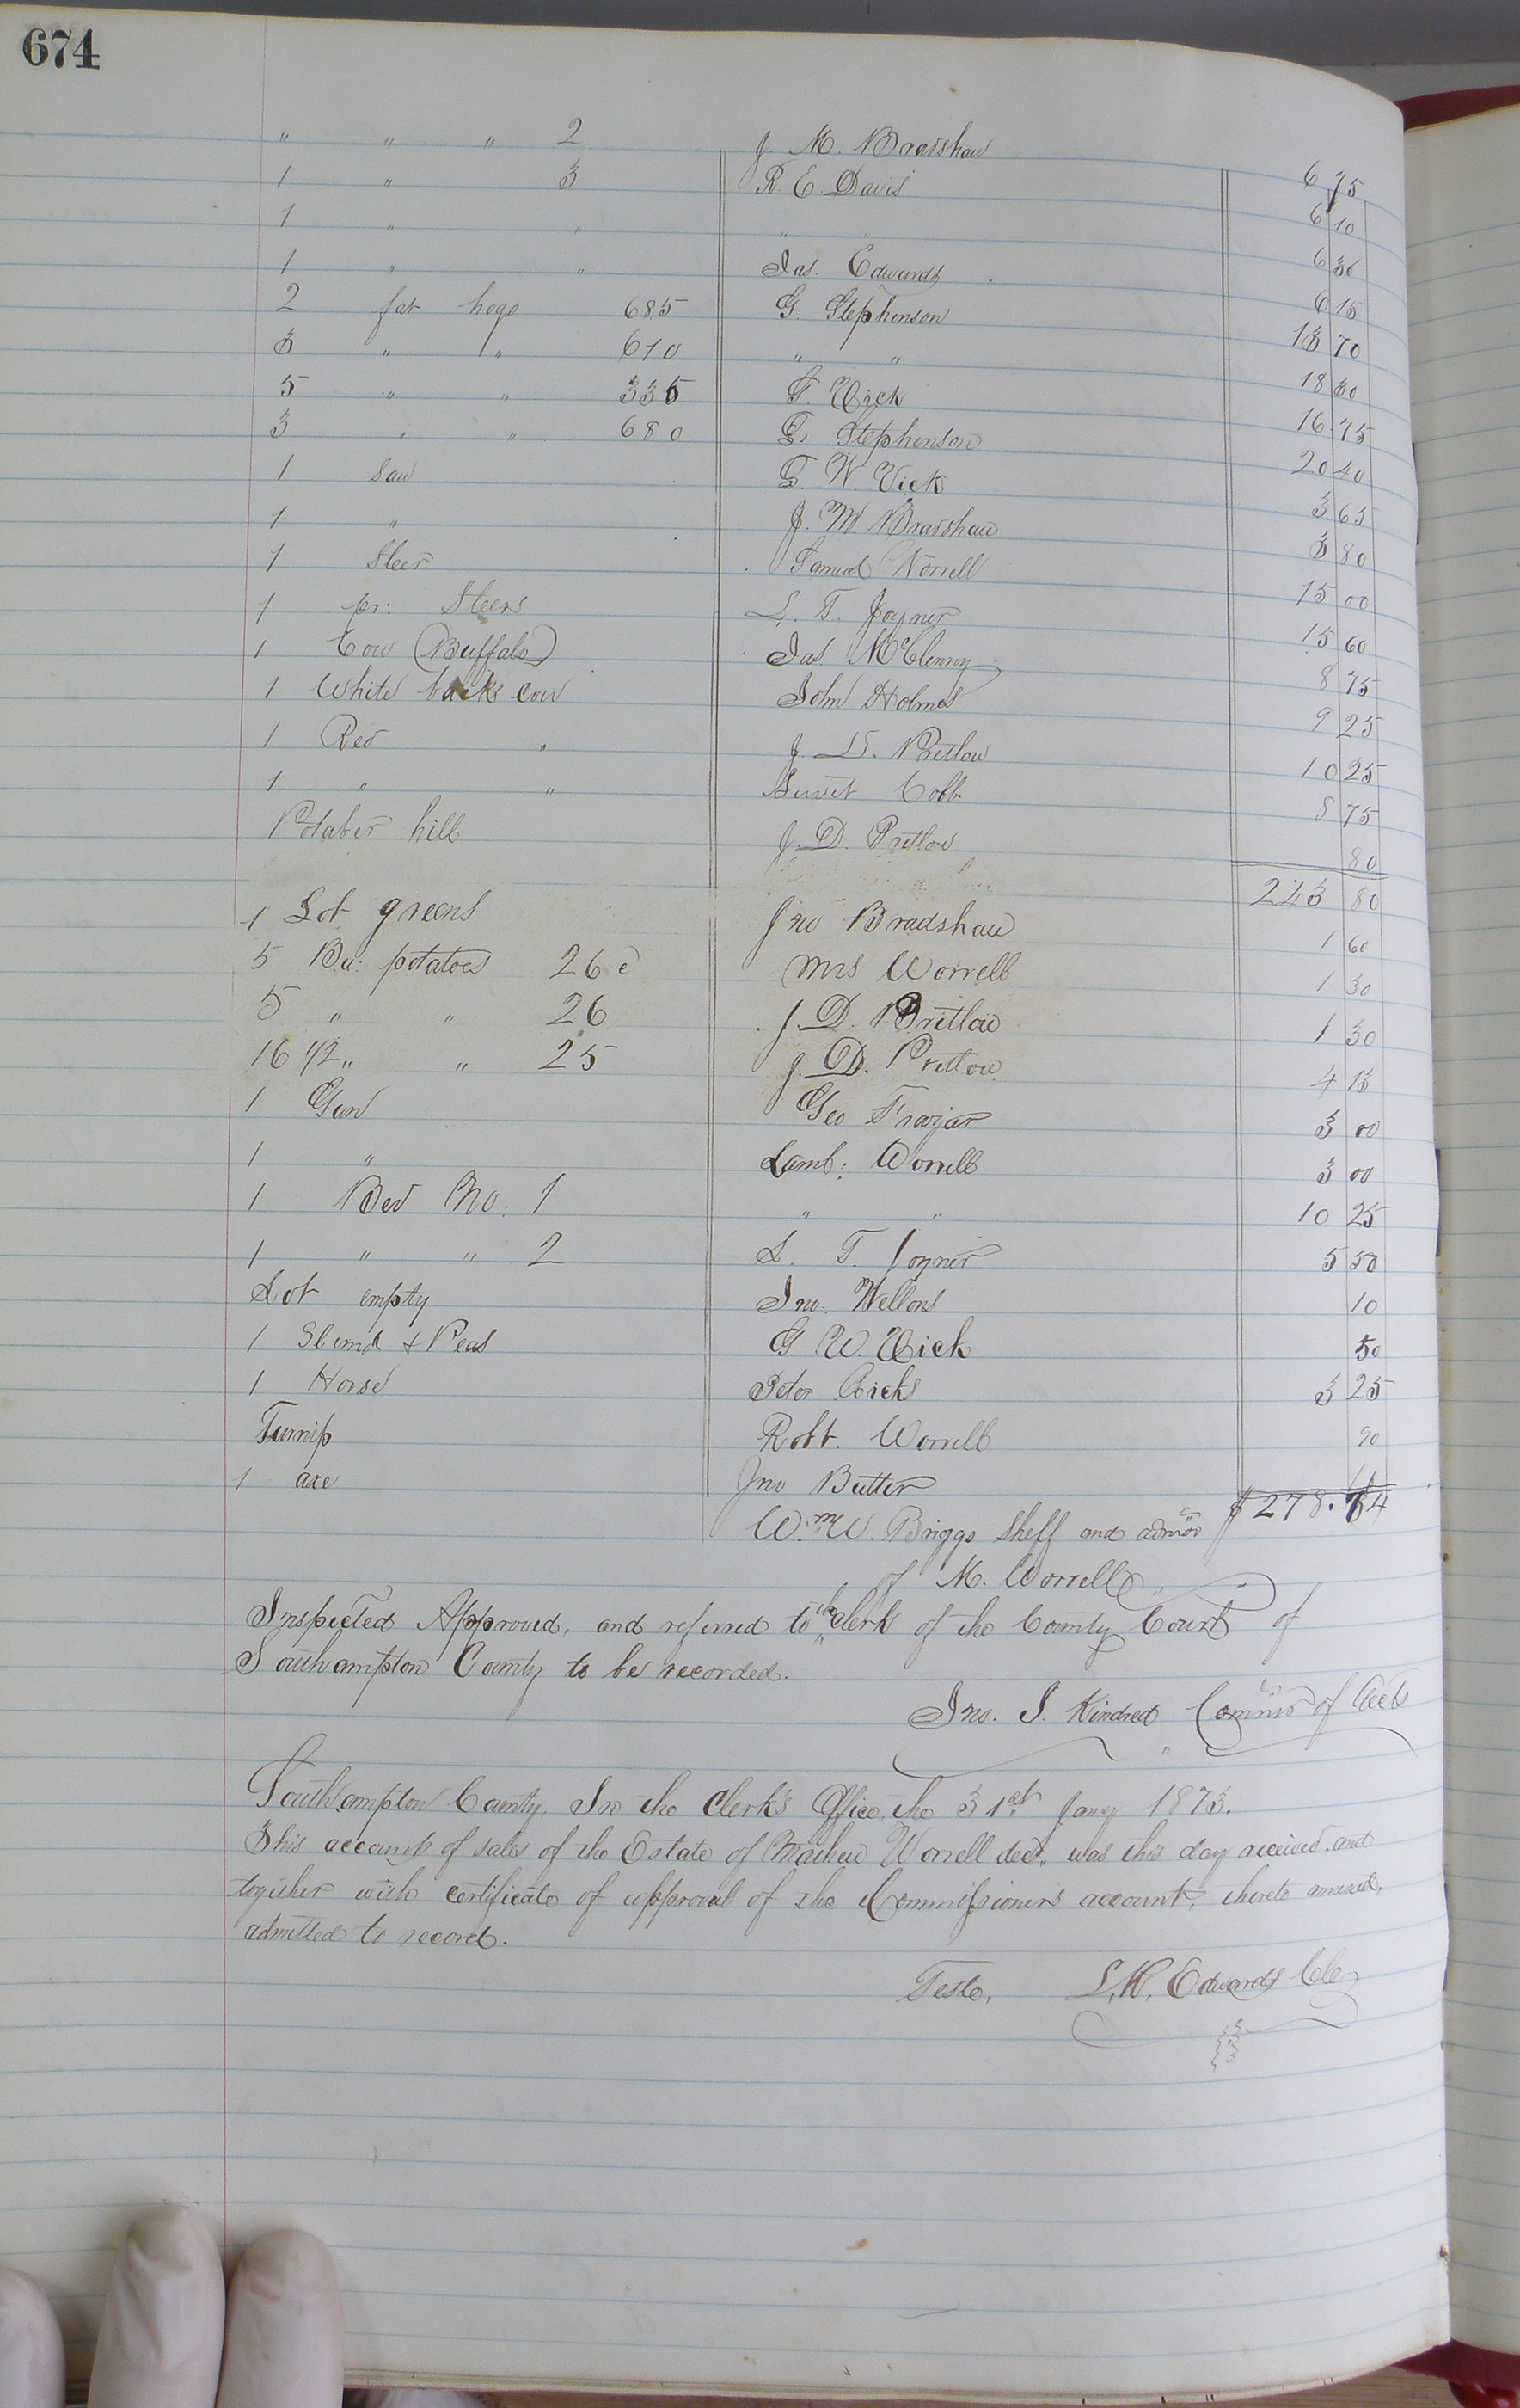 674
" " " 2 J. M. Bradshaw 6 75
1 " 3 R. E. Davis 6 10
1 " " " " 6 30
1 " " Jas. Edwards 6 15
2 fat hogs 685 G. Stephenson 13 70
3 " " 610 " " 18 30
5 " " 335 T. Vick 16 75
3 " " 680 G. Stephenson 20 40
1 Sow G. W. Vick 3 65
1 " J. M Bradshaw 3 80
1 Steer Samuel Worrell 15 00
1 pr: Steers L. T. Joyner 15 60
1 Cow (Buffalo) Jas McClenny 8 75
1 White back cow John Holmes 9 25
1 Red " J. D. Pretlow 10 25
1 " " Cobb 8 75
hill J. D. Pretlow 80
223 80
1 Lot greens Jno Bradshaw 1 60
5 Bu: potatoes 26 c Mrs Worrell 1 30
5 " " 26 J. D. Pretlow 1 30
16 1/2 " " 25 J. D. Pretlow 4 13
1 Gun Geo 3 00
1 " Lamb: Worrell 3 00
1 Bed No. 1 " " 10 25
1 " " 2 L. T. Joyner 5 50
Lot empty Jno. Wellons 10
1 & Peas G. W. Vick 50
1 Horse Peter Ricks 3 25
Turnip Robt. Worrell 90
1 axe Jno Butter 11
Wm W. Briggs Sheff and admor $ 278.74
of M. Worrell
Inspected Approved, and referred to the Clerk of the County Court of
Southampton County to be recorded.
Jno. J. Kindred Commr of Accts
Southampton County. In the Clerk's Office, the 31st Jany 1873.
This account of sales of the Estate of Mathew Worrell decd. was this day received and
together with certificate of approval of the Commissioners account, thereto annexed,
admitted to record.
Teste, L. R. Edwards Clk